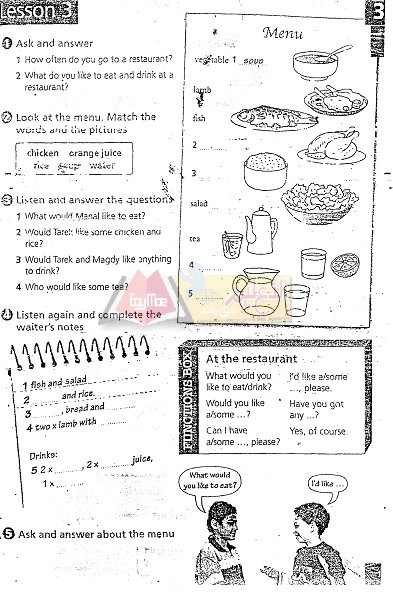 Lesson 3
3
1 Ask and answer
1 How often do you go to a restaurant?
2 What do you like to eat and drink at a
restaurant?
2 Look at the menu. Match the
words and the pictures
chicken orange juice
rice soup water
3 Listen and answer the questions
1 What would Manal like to eat?
2 Would Tarek like some chicken and
rice?
3 Would Tarek and Magdy like anything
to drink?
4 Who would like some tea?
4 Listen again and complete the
waiter's notes
1 fish and salad
2 ______ and rice.
3 ______, bread and ______
4 two x lamb with ______
Drinks:
5 2 x ______, 2 x ______ juice,
1 x ______.
5 Ask and answer about the menu
Menu
vegetable 1 soup
lamb
fish
2
3
salad
tea
4
5
FUNCTIONS BOX
At the restaurant
What would you like to eat/drink?
I'd like a/some ..., please.
Would you like a/some ...?
Have you got any ...?
Can I have a/some ..., please?
Yes, of course.
What would
you like to eat?
I'd like ...